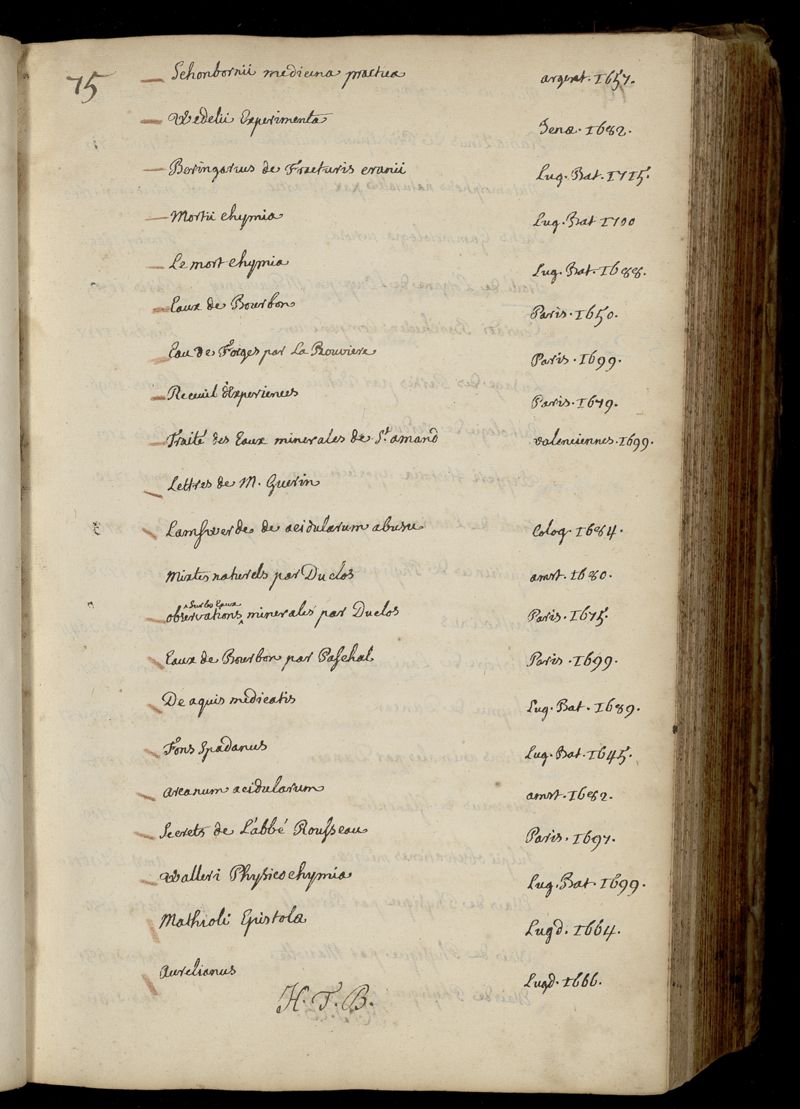 75
Schonbornii medicina practica argent. 1657.
Wedelii Experimenta Jenæ. 1682.
Beringarius de Fracturis cranii Lug. Bat. 1715.
Mortii chymia Lug. Bat 1700
Le mort chymia Lug. Bat. 1688.
Eaux de Bourbon Paris. 1650.
Eau de Forges par La Rouviere Paris. 1699.
Receuil d'Experiences Paris. 1679.
Traité des Eaux minerales de St. amand valenciennes. 1699.
Lettres de M. Guerin
Lamswerde de acidularum abusu Coloq. 1684.
Mixtes naturels par Duclos amst. 1680.
Sur les Eaux
observations minerales par Duclos Paris. 1675.
Eaux de Bourbon par Paschal Paris. 1699.
De aquis medicatis Lug. Bat. 1689.
Fons Spadanus Lug. Bat. 1645.
arcanum acidularum amst. 1682.
Secrets de L'abbé Rousseau Paris. 1697.
Walleri Physicochymia Lug. Bat. 1699.
Mathioli Epistolæ Lugd. 1664.
Aurelianus Lugd. 1666.
H. T. B.